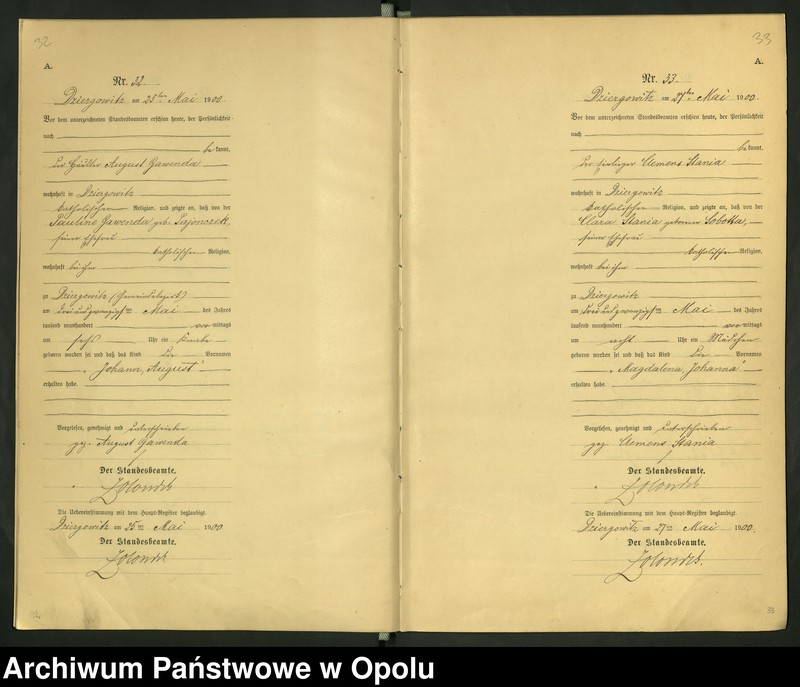 32
A.
Nr. 32.
Dziergowitz am 25ten Mai 1900.
Vor dem unterzeichneten Standesbeamten erschien heute, der Persönlichkeit
nach
bekannt,
der Häusler August Gawenda
wohnhaft in Dziergowitz
katholischer Religion, und zeigte an, daß von der
Pauline Gawenda geb. Pajonczek,
seiner Ehefrau
katholischer Religion,
wohnhaft bei ihm
zu Dziergowitz (Gemeindebezirk)
am dreiundzwanzigsten Mai des Jahres
tausend neunhundert vormittags
um sechs Uhr ein Knabe
geboren worden sei und daß das Kind die Vornamen
"Johann, August"
erhalten habe.
Vorgelesen, genehmigt und unterschrieben
gez. August Gawenda
Der Standesbeamte.
Die Uebereinstimmung mit dem Haupt-Register beglaubigt.
Dziergowitz am 25ten Mai 1900
Der Standesbeamte.
33
A.
Nr. 33.
Dziergowitz am 27ten Mai 1900.
Vor dem unterzeichneten Standesbeamten erschien heute, der Persönlichkeit
nach
bekannt,
der Clemens Stania
wohnhaft in Dziergowitz
katholischer Religion, und zeigte an, daß von der
Clara Stania geborene Sobotta,
seiner Ehefrau
katholischer Religion,
wohnhaft bei ihm
zu Dziergowitz
am dreiundzwanzigsten Mai des Jahres
tausend neunhundert vormittags
um acht Uhr ein Mädchen
geboren worden sei und daß das Kind die Vornamen
"Magdalena, Johanna"
erhalten habe.
Vorgelesen, genehmigt und unterschrieben
gez. Clemens Stania
Der Standesbeamte.
Die Uebereinstimmung mit dem Haupt-Register beglaubigt.
Dziergowitz am 27ten Mai 1900.
Der Standesbeamte.
33
Archiwum Państwowe w Opolu